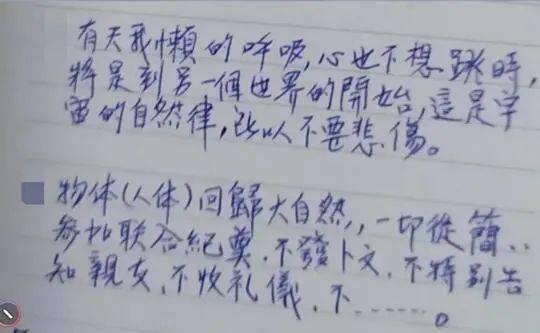 有天我懶的呼吸,心也不想跳時,
將是到另一個世界的開始,這是宇
宙的自然律,所以人不要悲傷。
物体(人体)回歸大自然,,一切從簡..
參加聯合紀奠.不發卜文.不特別告
知親友.不收礼儀.不.......。